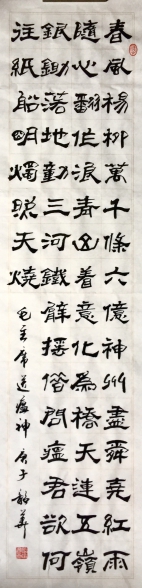 春風楊柳萬千條六億神州盡舜堯紅雨
隨心翻作浪青山着意化為橋天連五嶺
銀鋤落地動三河鐵臂搖借問瘟君欲何
往紙船明燭照天燒
毛主席送瘟神庚子